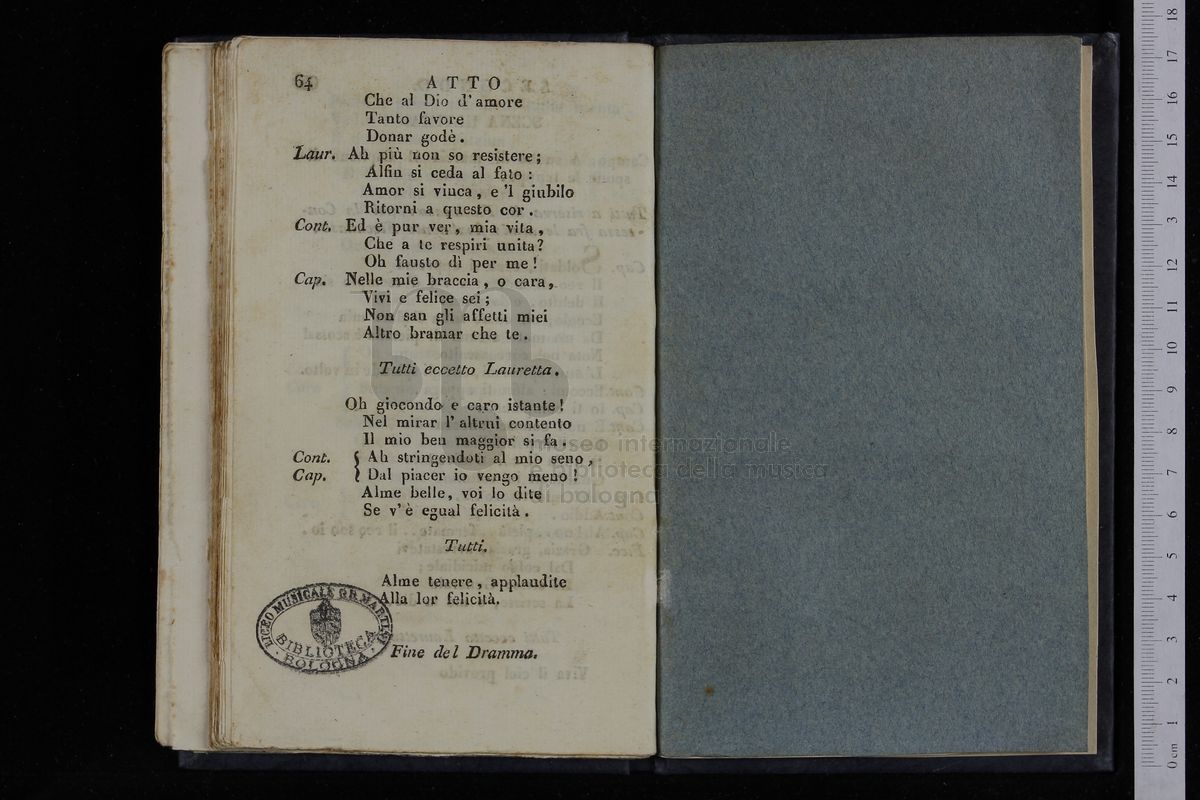 64 ATTO
Che al Dio d'amore
Tanto favore
Donar godè.
Laur. Ah più non so resistere;
Alfin si ceda al fato:
Amor si vinca, e 'l giubilo
Ritorni a questo cor.
Cont. Ed è pur ver, mia vita,
Che a te respiri unita?
Oh fausto dì per me!
Cap. Nelle mie braccia, o cara,
Vivi e felice sei;
Non san gli affetti miei
Altro bramar che te.
Tutti eccetto Lauretta.
Oh giocondo e caro istante!
Nel mirar l'altrui contento
Il mio ben maggior si fa.
Cont. { Ah stringendoti al mio seno,
Cap. { Dal piacer io vengo meno!
Alme belle, voi lo dite
Se v'è egual felicità.
Tutti.
Alme tenere, applaudite
Alla lor felicità.
Fine del Dramma.
LICEO MUSICALE G.B. MARTINI
BIBLIOTECA
BOLOGNA
museo internazionale
e biblioteca della musica
di bologna
0 cm 1 2 3 4 5 6 7 8 9 10 11 12 13 14 15 16 17 18